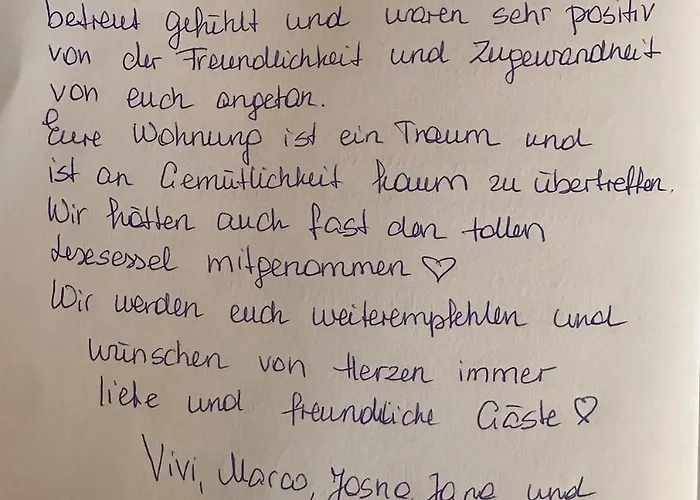 betreut gefühlt und waren sehr positiv
von der Freundlichkeit und Zugewandheit
von euch angetan.
Eure Wohnung ist ein Traum und
ist an Gemütlichkeit kaum zu übertreffen.
Wir hätten auch fast den tollen
Lesesessel mitgenommen ♡
Wir werden euch weiterempfehlen und
wünschen von Herzen immer
liebe und freundliche Gäste ♡
Vivi, Marco, und